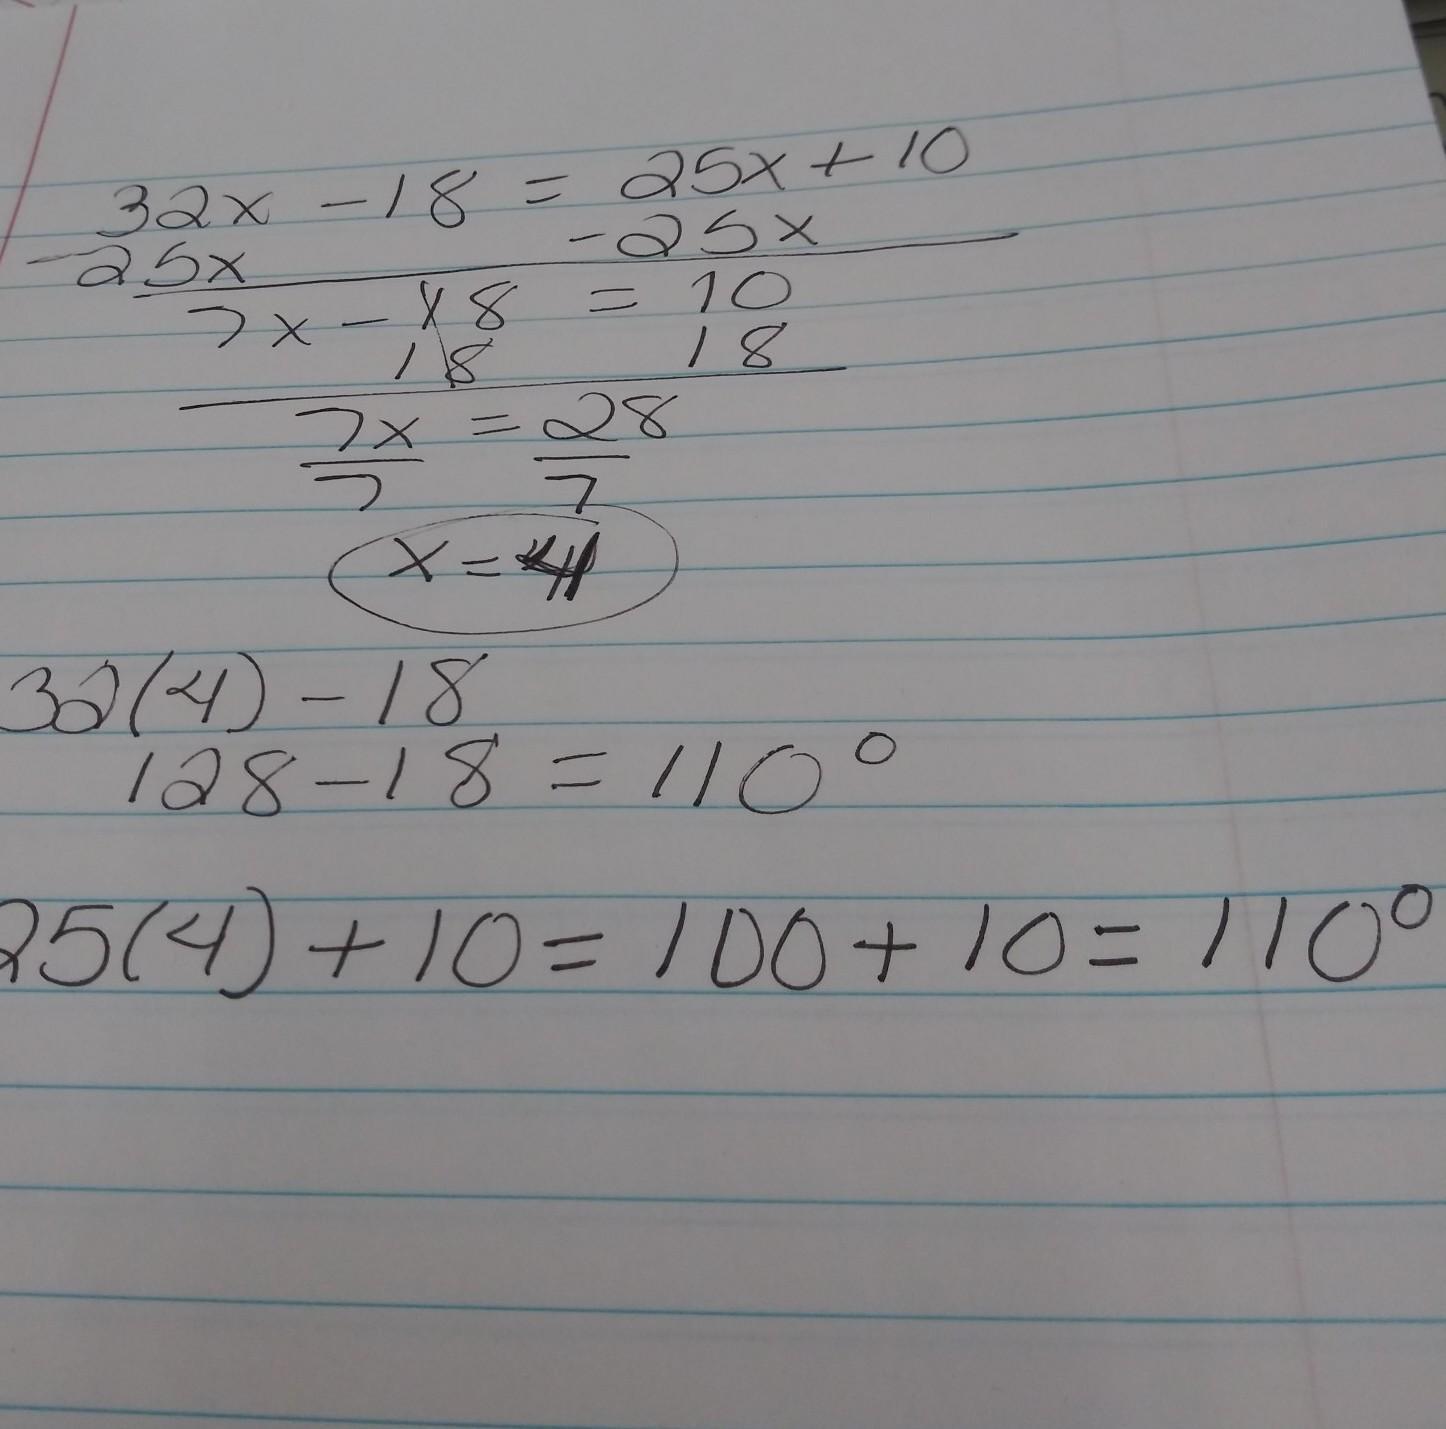 32x - 18 = 25x + 10
-25x -25x
7x - 18 = 10
18 18
7x = 28
7 7
x = 4
32(4) - 18
128 - 18 = 110°
25(4) + 10 = 100 + 10 = 110°